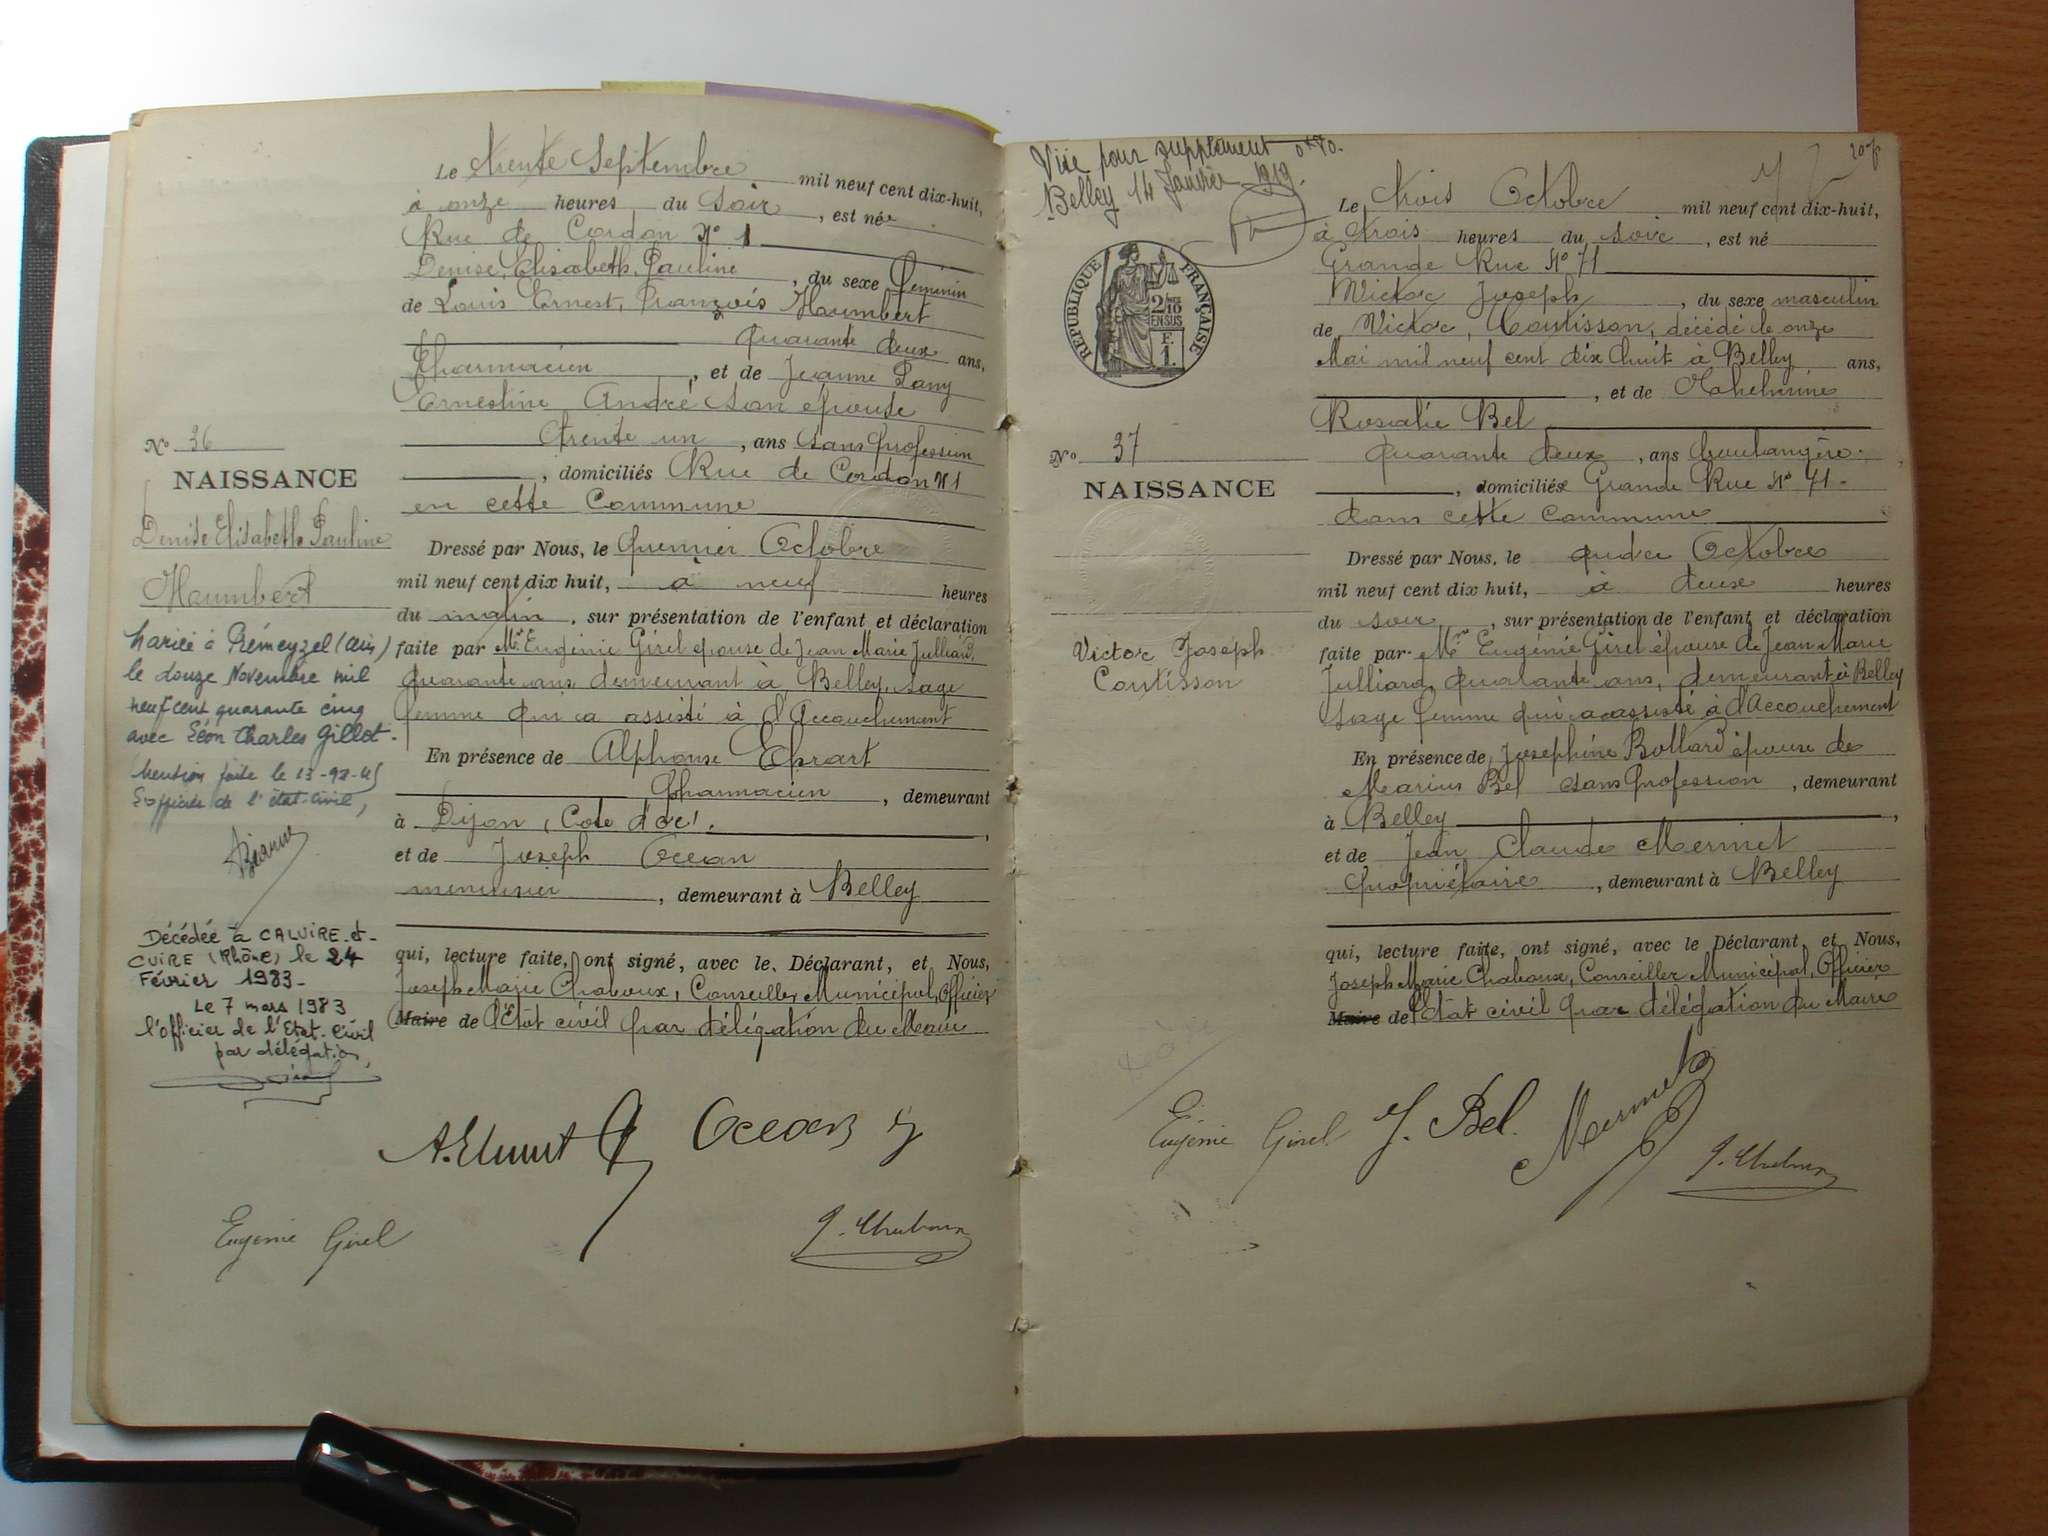 Le trente Septembre mil neuf cent dix-huit,
à onze heures du Soir, est née
Rue de Cordon N° 1
Denise, Elisabeth, Pauline, du sexe féminin
de Louis Ernest, François Humbert
quarante deux ans,
Pharmacien, et de Jeanne
Ernestine André son épouse
trente un, ans sans profession
, domiciliés Rue de Cordon N° 1
en cette Commune
Dressé par Nous, le premier Octobre
mil neuf cent dix huit, à neuf heures
du matin, sur présentation de l'enfant et déclaration
faite par Me Eugénie Girel épouse de Jean Marie Julliard,
quarante ans demeurant à Belley, sage
femme qui a assisté à l'Accouchement
En présence de Alphonse
Pharmacien, demeurant
à Dijon, Cote d'or.,
et de Joseph Ocean
menuisier, demeurant à Belley
qui, lecture faite, ont signé, avec le Déclarant, et Nous,
Joseph Marie Chaboux, Conseiller Municipal, Officier
Maire de l'Etat civil par délégation du Maire
N° 36
NAISSANCE
Denise Elisabeth Pauline
Humbert
Mariée à Prémeyzel (Ain)
le douze Novembre mil
neuf cent quarante cinq
avec Léon Charles Gillot.
Mention faite le 13-12-45
L'officier de l'état-civil,
Décédée à CALUIRE-et-
CUIRE (Rhône) le 24
Février 1983-
Le 7 mars 1983
l'officier de l'Etat-Civil
par délégation,
Ocean J
Eugénie Girel
J. Chaboux
Visé pour supplément 0f40.
Belley 14 Janvier 1919.
RÉPUBLIQUE FRANÇAISE
2/10
EN SUS
F.
1.
Le trois Octobre mil neuf cent dix-huit,
à trois heures du soir, est né
Grande Rue N° 71
Victor Joseph, du sexe masculin
de Victor, Coutisson, décédé le onze
Mai mil neuf cent dix huit à Belley ans,
, et de
Rosalie Bel
quarante deux, ans boulangère.
, domiciliés Grande Rue N° 71.
dans cette commune
Dressé par Nous, le quatre Octobre
mil neuf cent dix huit, à deux heures
du soir, sur présentation de l'enfant et déclaration
faite par Me Eugénie Girel épouse de Jean Marie
Julliard, quarante ans, demeurant à Belley
sage femme qui a assisté à l'Accouchement
En présence de Joséphine Bollard épouse de
Marius Bel sans profession, demeurant
à Belley,
et de Jean Claude Mermet
propriétaire, demeurant à Belley
qui, lecture faite, ont signé, avec le Déclarant, et Nous,
Joseph Marie Chaboux, Conseiller Municipal, Officier
Maire de l'Etat civil par délégation du Maire
N° 37
NAISSANCE
Victor Joseph
Coutisson
Eugénie Girel J. Bel. Mermet
J. Chaboux